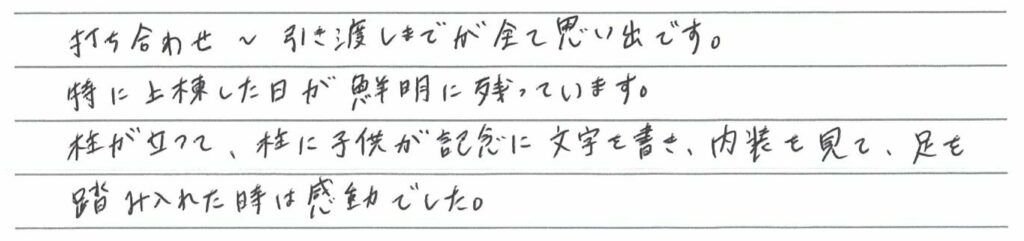 打ち合わせ～引き渡しまでが全て思い出です。
特に上棟した日が鮮明に残っています。
柱が立って、柱に子供が記念に文字を書き、内装を見て、足を
踏み入れた時は感動でした。